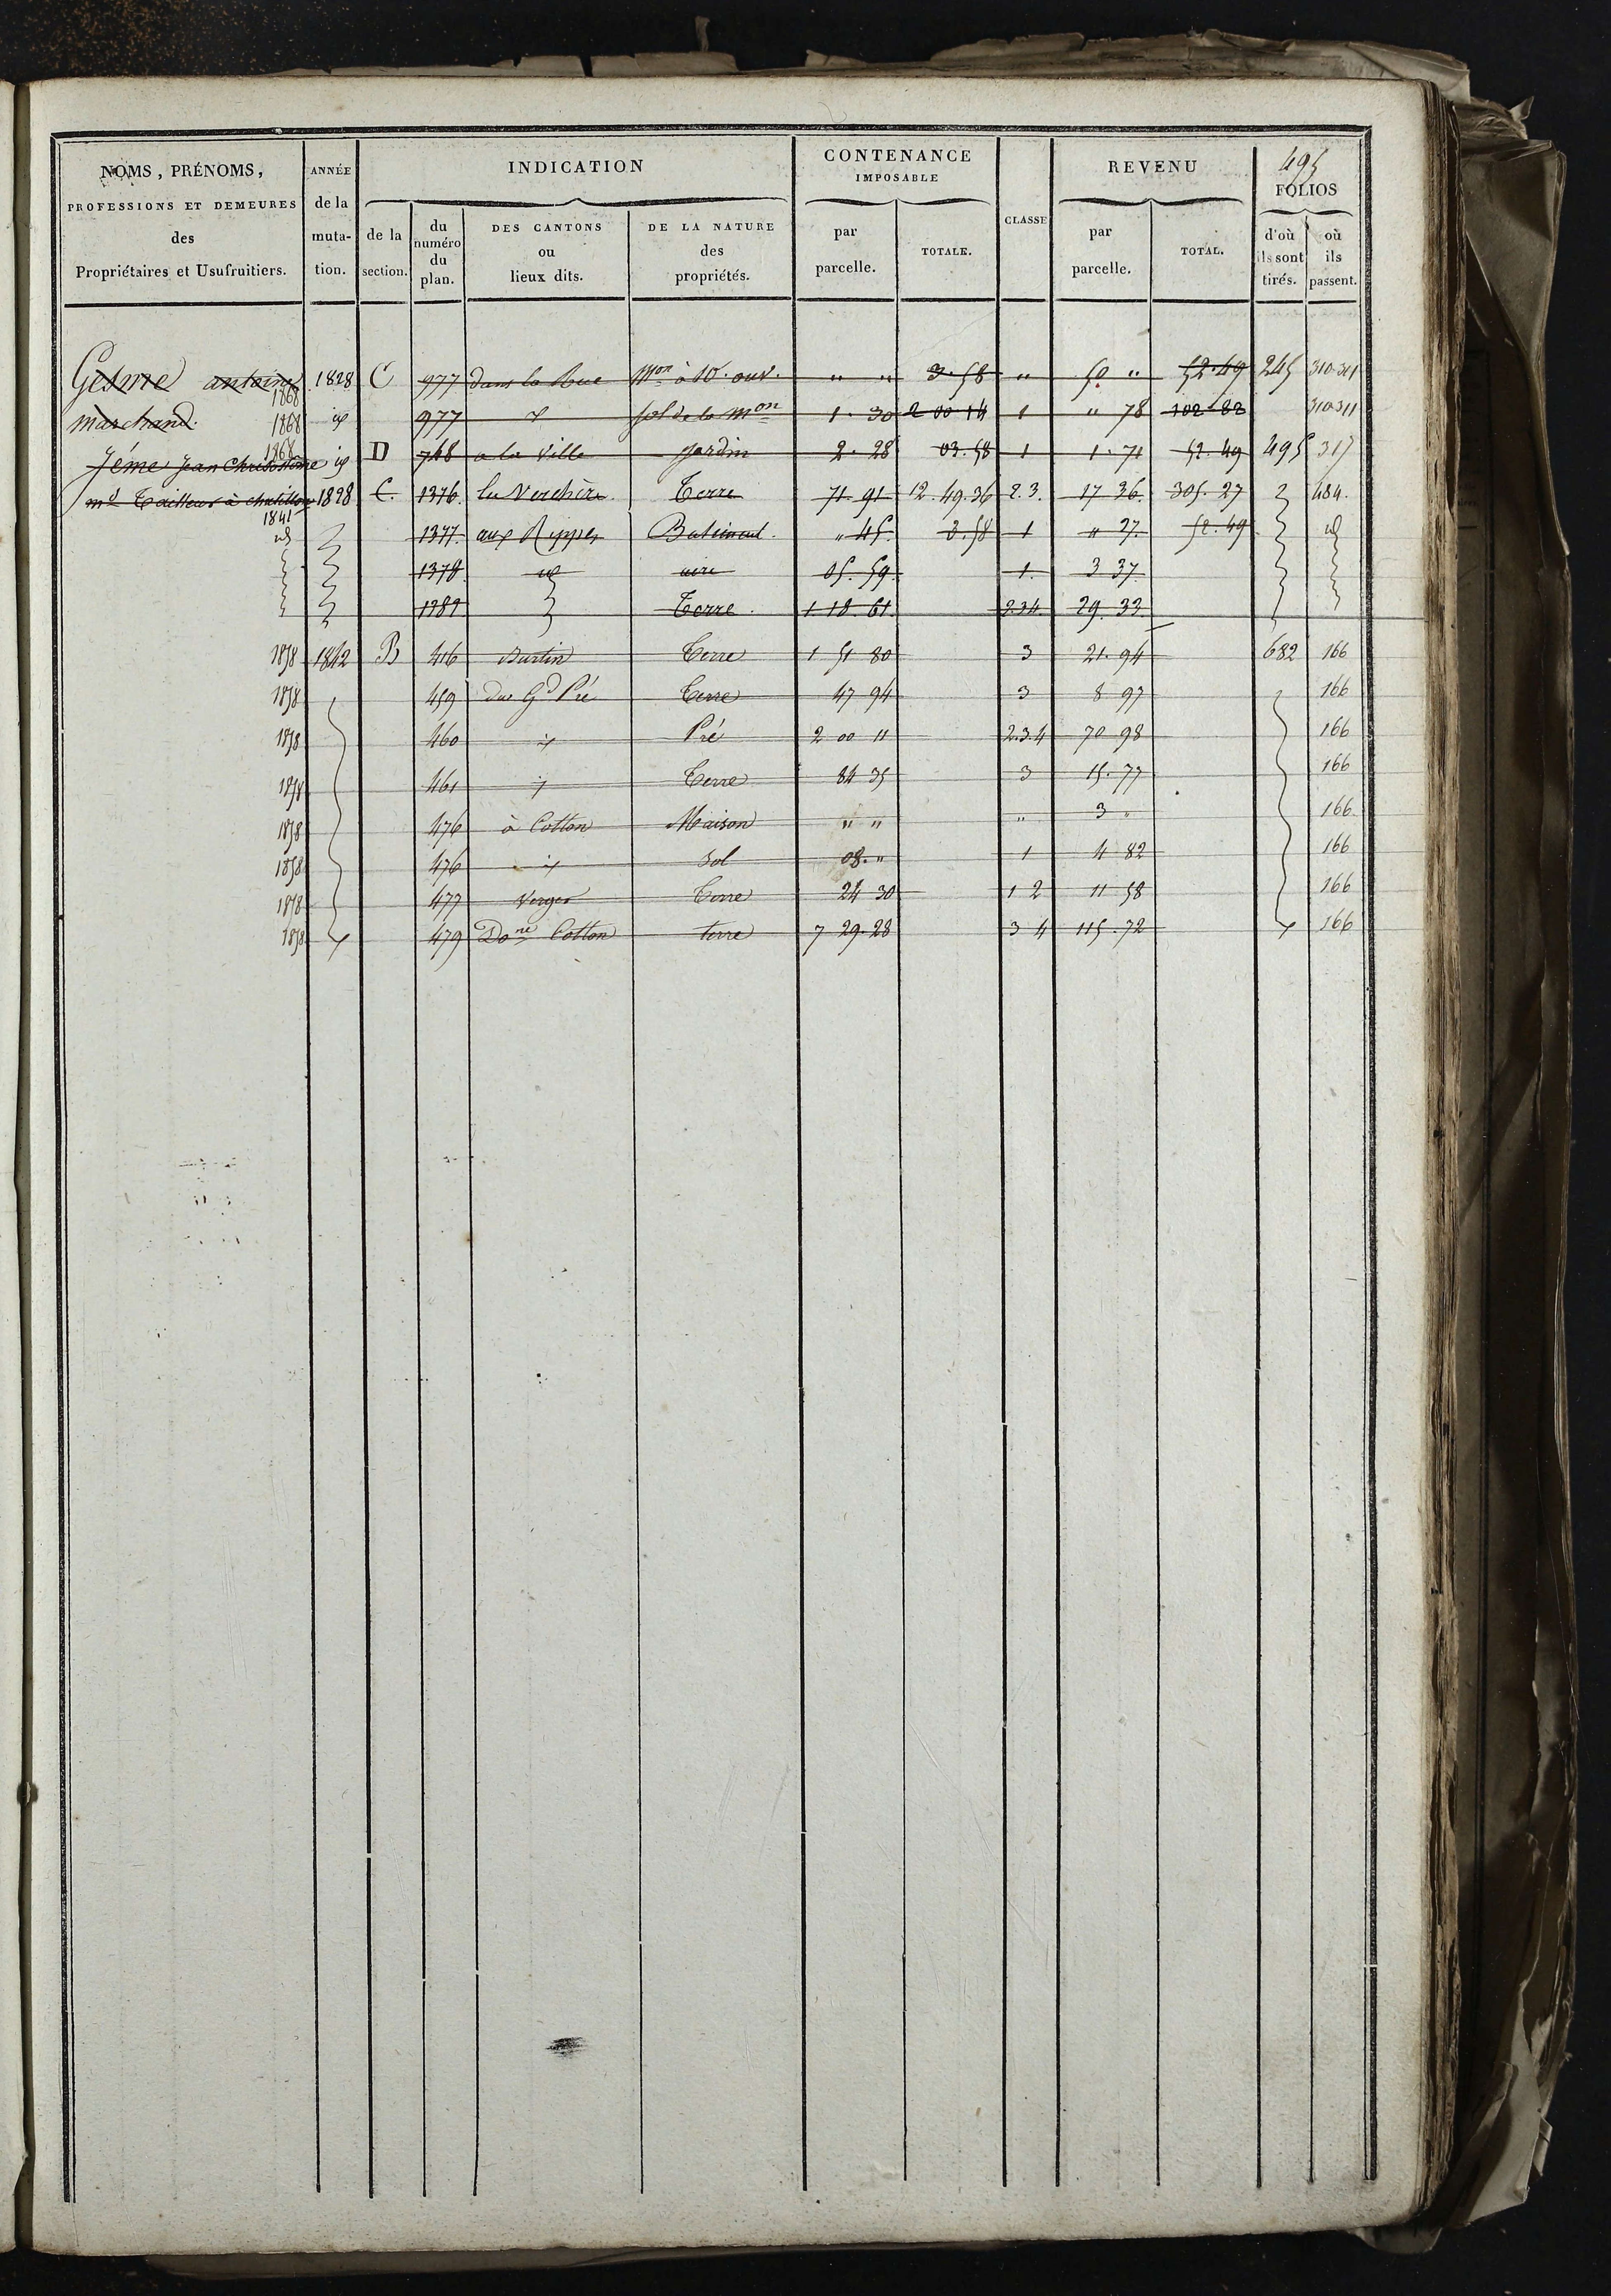 495
NOMS, PRÉNOMS, PROFESSIONS ET DEMEURES des Propriétaires et Usufruitiers. ANNÉE de la mutation. INDICATION de la section. du numéro du plan. DES CANTONS ou lieux dits. DE LA NATURE des propriétés. CONTENANCE IMPOSABLE par parcelle. TOTALE. CLASSE REVENU par parcelle. TOTAL. FOLIOS d'où ils sont tirés. où ils passent.
Gesme antoine 1868 1828 C 977 dans la Rue Mon à 10. ouv. " " 3.58 " 50 " 52.49 245 310.311
marchand. 1868 id 977 id sol de la Mon 1.30 2 00 14 1 " 78 102.82 310.311
Jéme Jean Chrisostôme 1868 id D 748 a la Ville Jardin 2.28 03.58 1 1.71 52.49 495 317
md Tailleur à chatillon 1841 1828 C. 1376 la Verchère Terre 71.91 12.49.36 2.3. 17 36. 305.27 484.
id 1377 aux Rippes Batiment. " 45. 3.58 1 " 27. 52.49 id
1378 id aire 05.59. 1. 3 37.
1381 Terre. 1 18.61. 2.3.4 29.33.
1858 1842 B 416 Burtin Terre 1 51 80 3 21.94 682 166
1858 459 du Gd Pré Terre 47 94 3 8 97 166
1858 460 id Pré 2 00 " 2.3.4 70 98 166
1858 461 id Terre 84 35 3 15.77 166
1858 476 à Cotton Maison " " " 3 " 166
1858 476 id Sol 08." 1 4 82 166
1858 477 Verger Terre 24 30 1 2 11 58 166
1858 id 479 Done Cotton terre 7 29.28 3 4 115.72 id 166